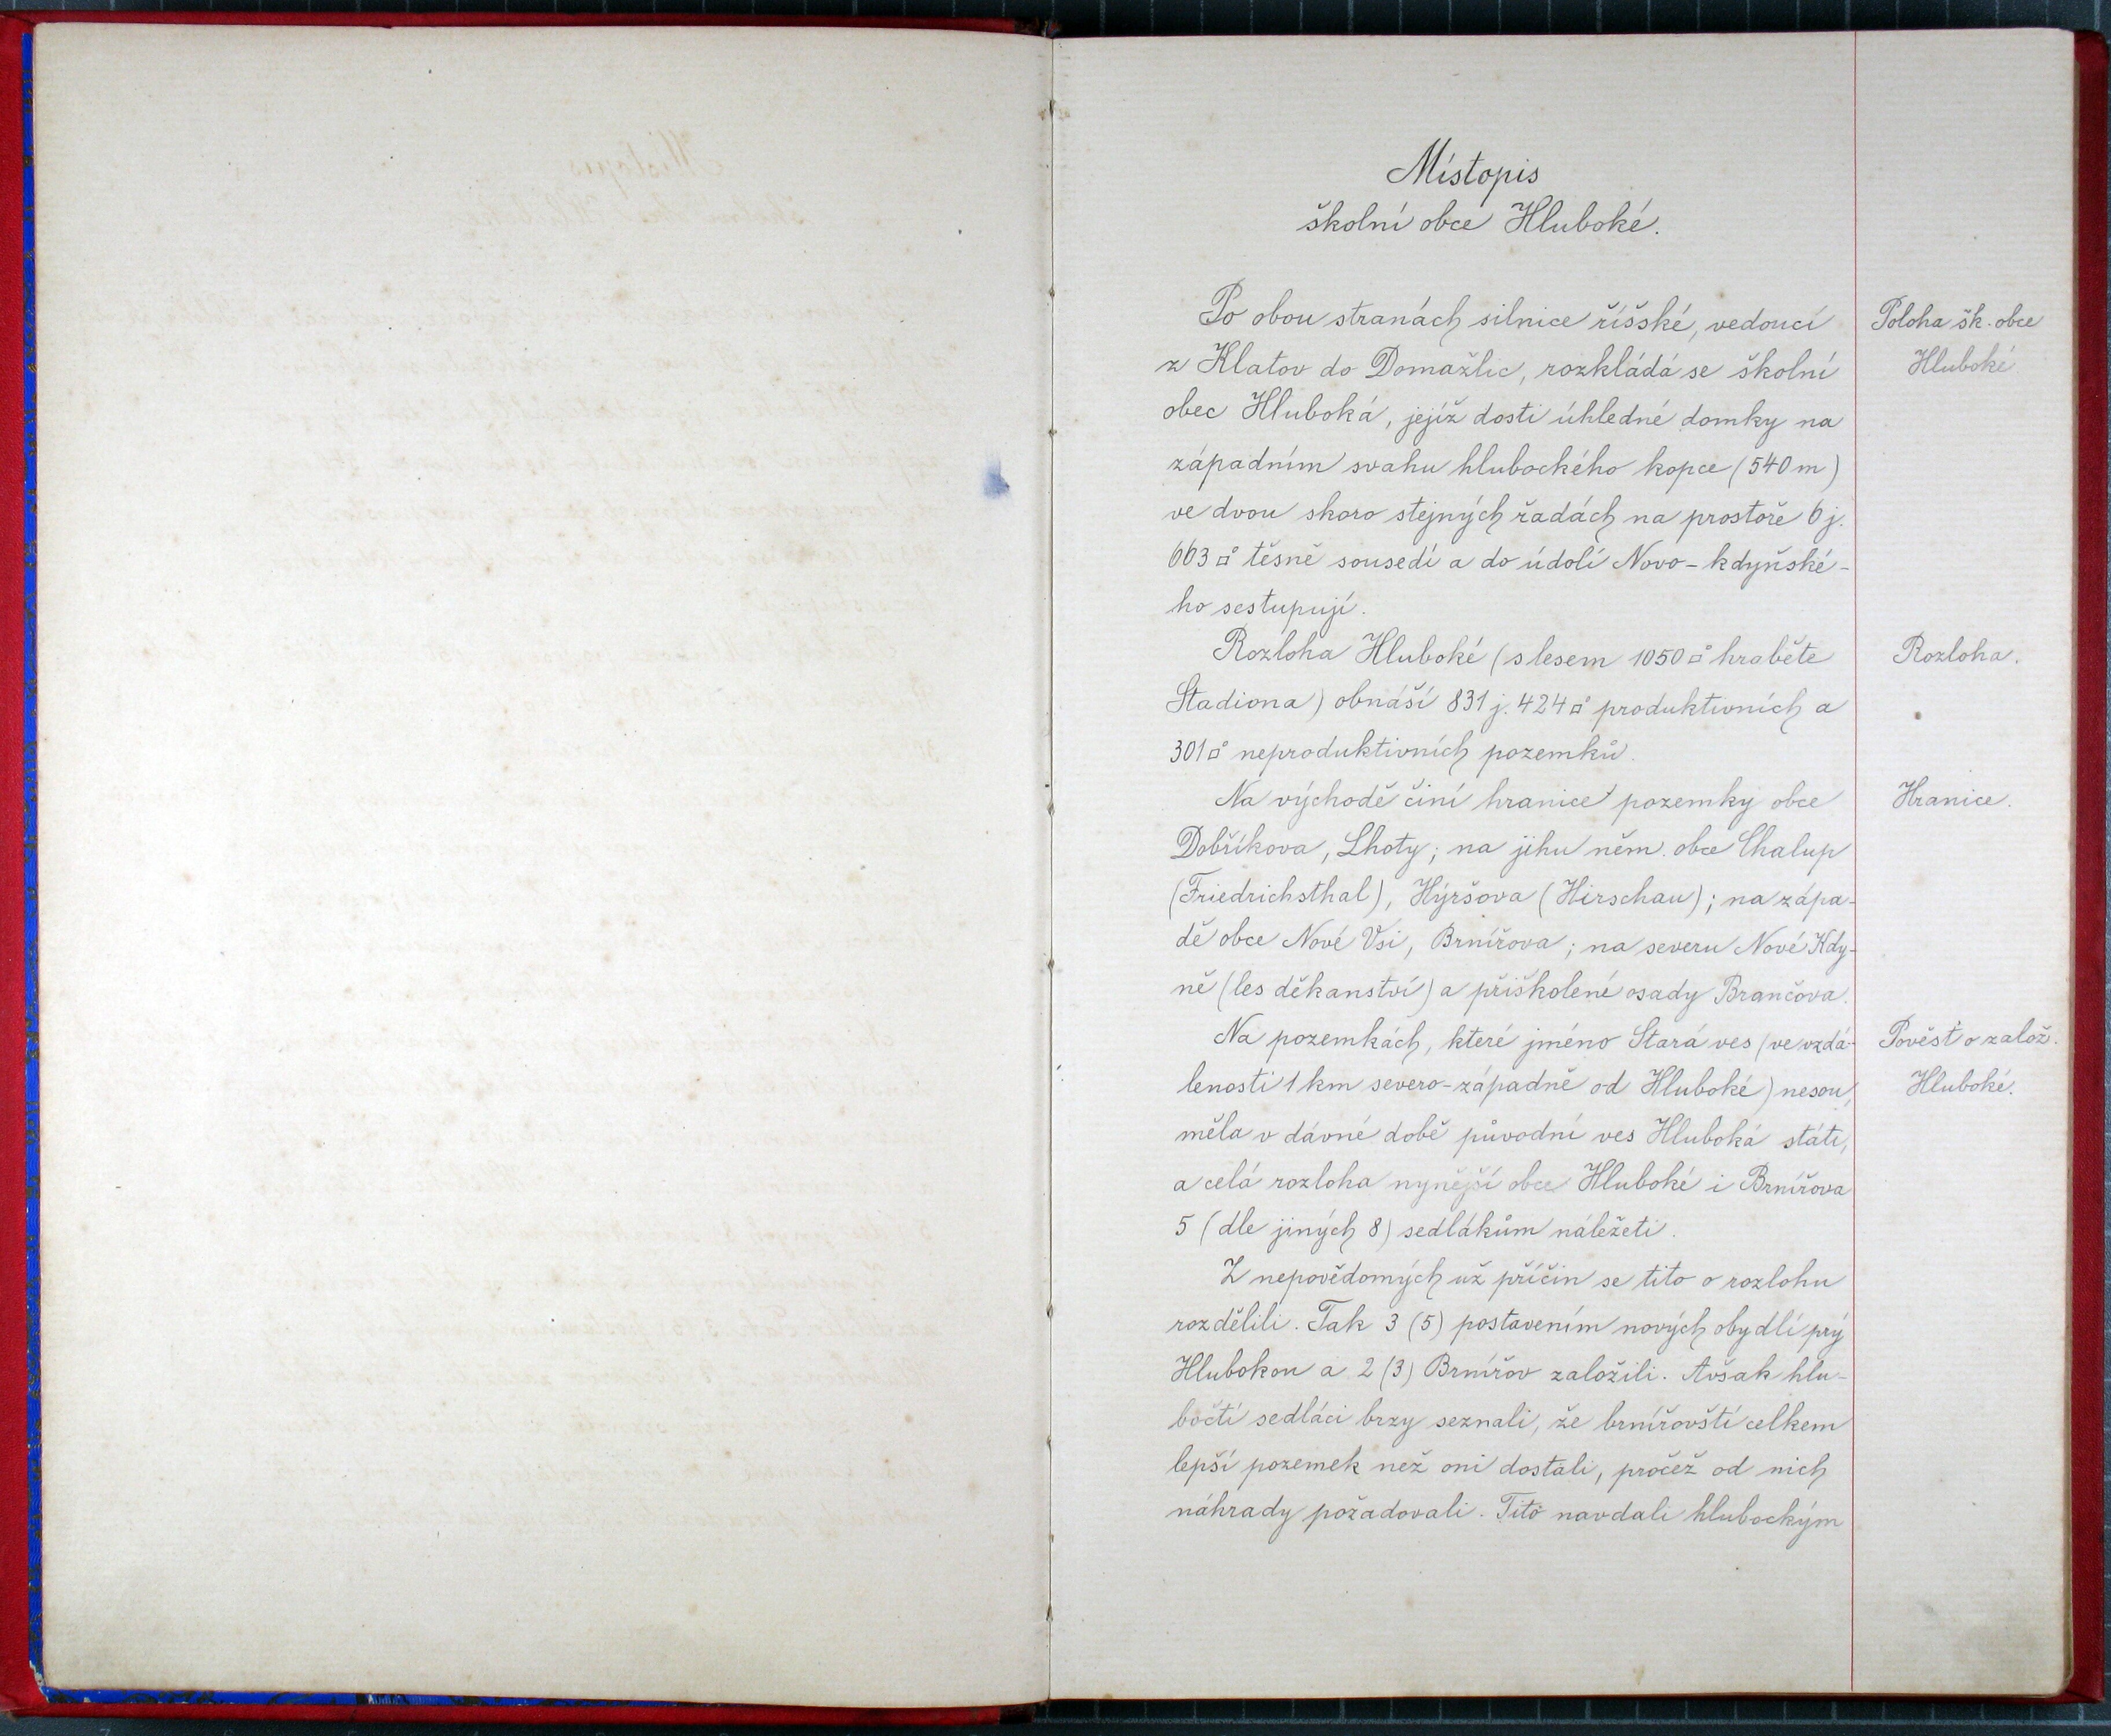 Místopis
školní obce Hluboké.
Po obou stranách silnice říšské, vedoucí
z Klatov do Domažlic, rozkládá se školní
obec Hluboká, jejíž dosti úhledné domky na
západním svahu hlubockého kopce (540 m)
ve dvou skoro stejných řadách na prostoře 6 j.
663□° těsně sousedí a do údolí Novo-kdyňské-
ho sestupují.
Rozloha Hluboké (s lesem 1050□° hraběte
Stadiona) obnáší 831 j. 424□° produktivních a
301□° neproduktivních pozemků.
Na východě činí hranice pozemky obce
Dobříkova, Lhoty; na jihu něm. obce Chalup
(Friedrichsthal), Hýršova (Hirschau); na západ-
dě obce Nové Vsi, Brnířova; na severu Nové Kdy-
ně (les děkanství) a přiškolené osady Brančova.
Na pozemkách, které jméno Stará ves (ve vzdá-
lenosti 1 km severo-západně od Hluboké) nesou,
měla v dávné době původní ves Hluboká státi,
a celá rozloha nynější obce Hluboké i Brnířova
5 (dle jiných 8) sedlákům náležeti.
Z nepovědomých už příčin se tito o rozlohu
rozdělili. Tak 3 (5) postavením nových obydlí prý
Hlubokou a 2 (3) Brnířov založili. Avšak hlu-
bočtí sedláci brzy seznali, že brnířovští celkem
lepší pozemek než oni dostali, pročež od nich
náhrady požadovali. Tito navdali hlubockým
Poloha šk. obce
Hluboké
Rozloha.
Hranice.
Pověsť o založ.
Hluboké.